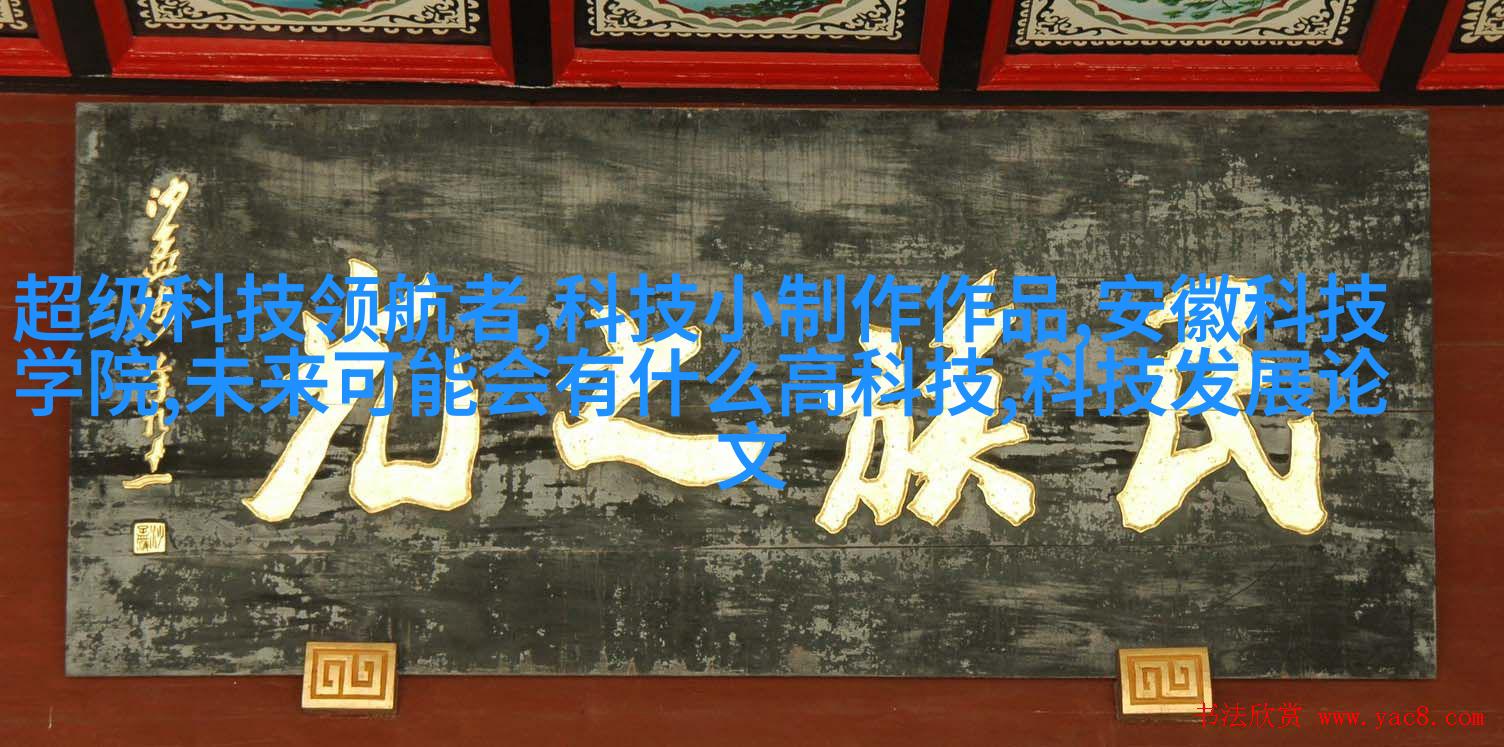 超级科技领航者,科技小制作作品,安徽科技
学院,未来可能会有什么高科技,科技发展论
文
民族之光
书法欣赏 www.yac8.com